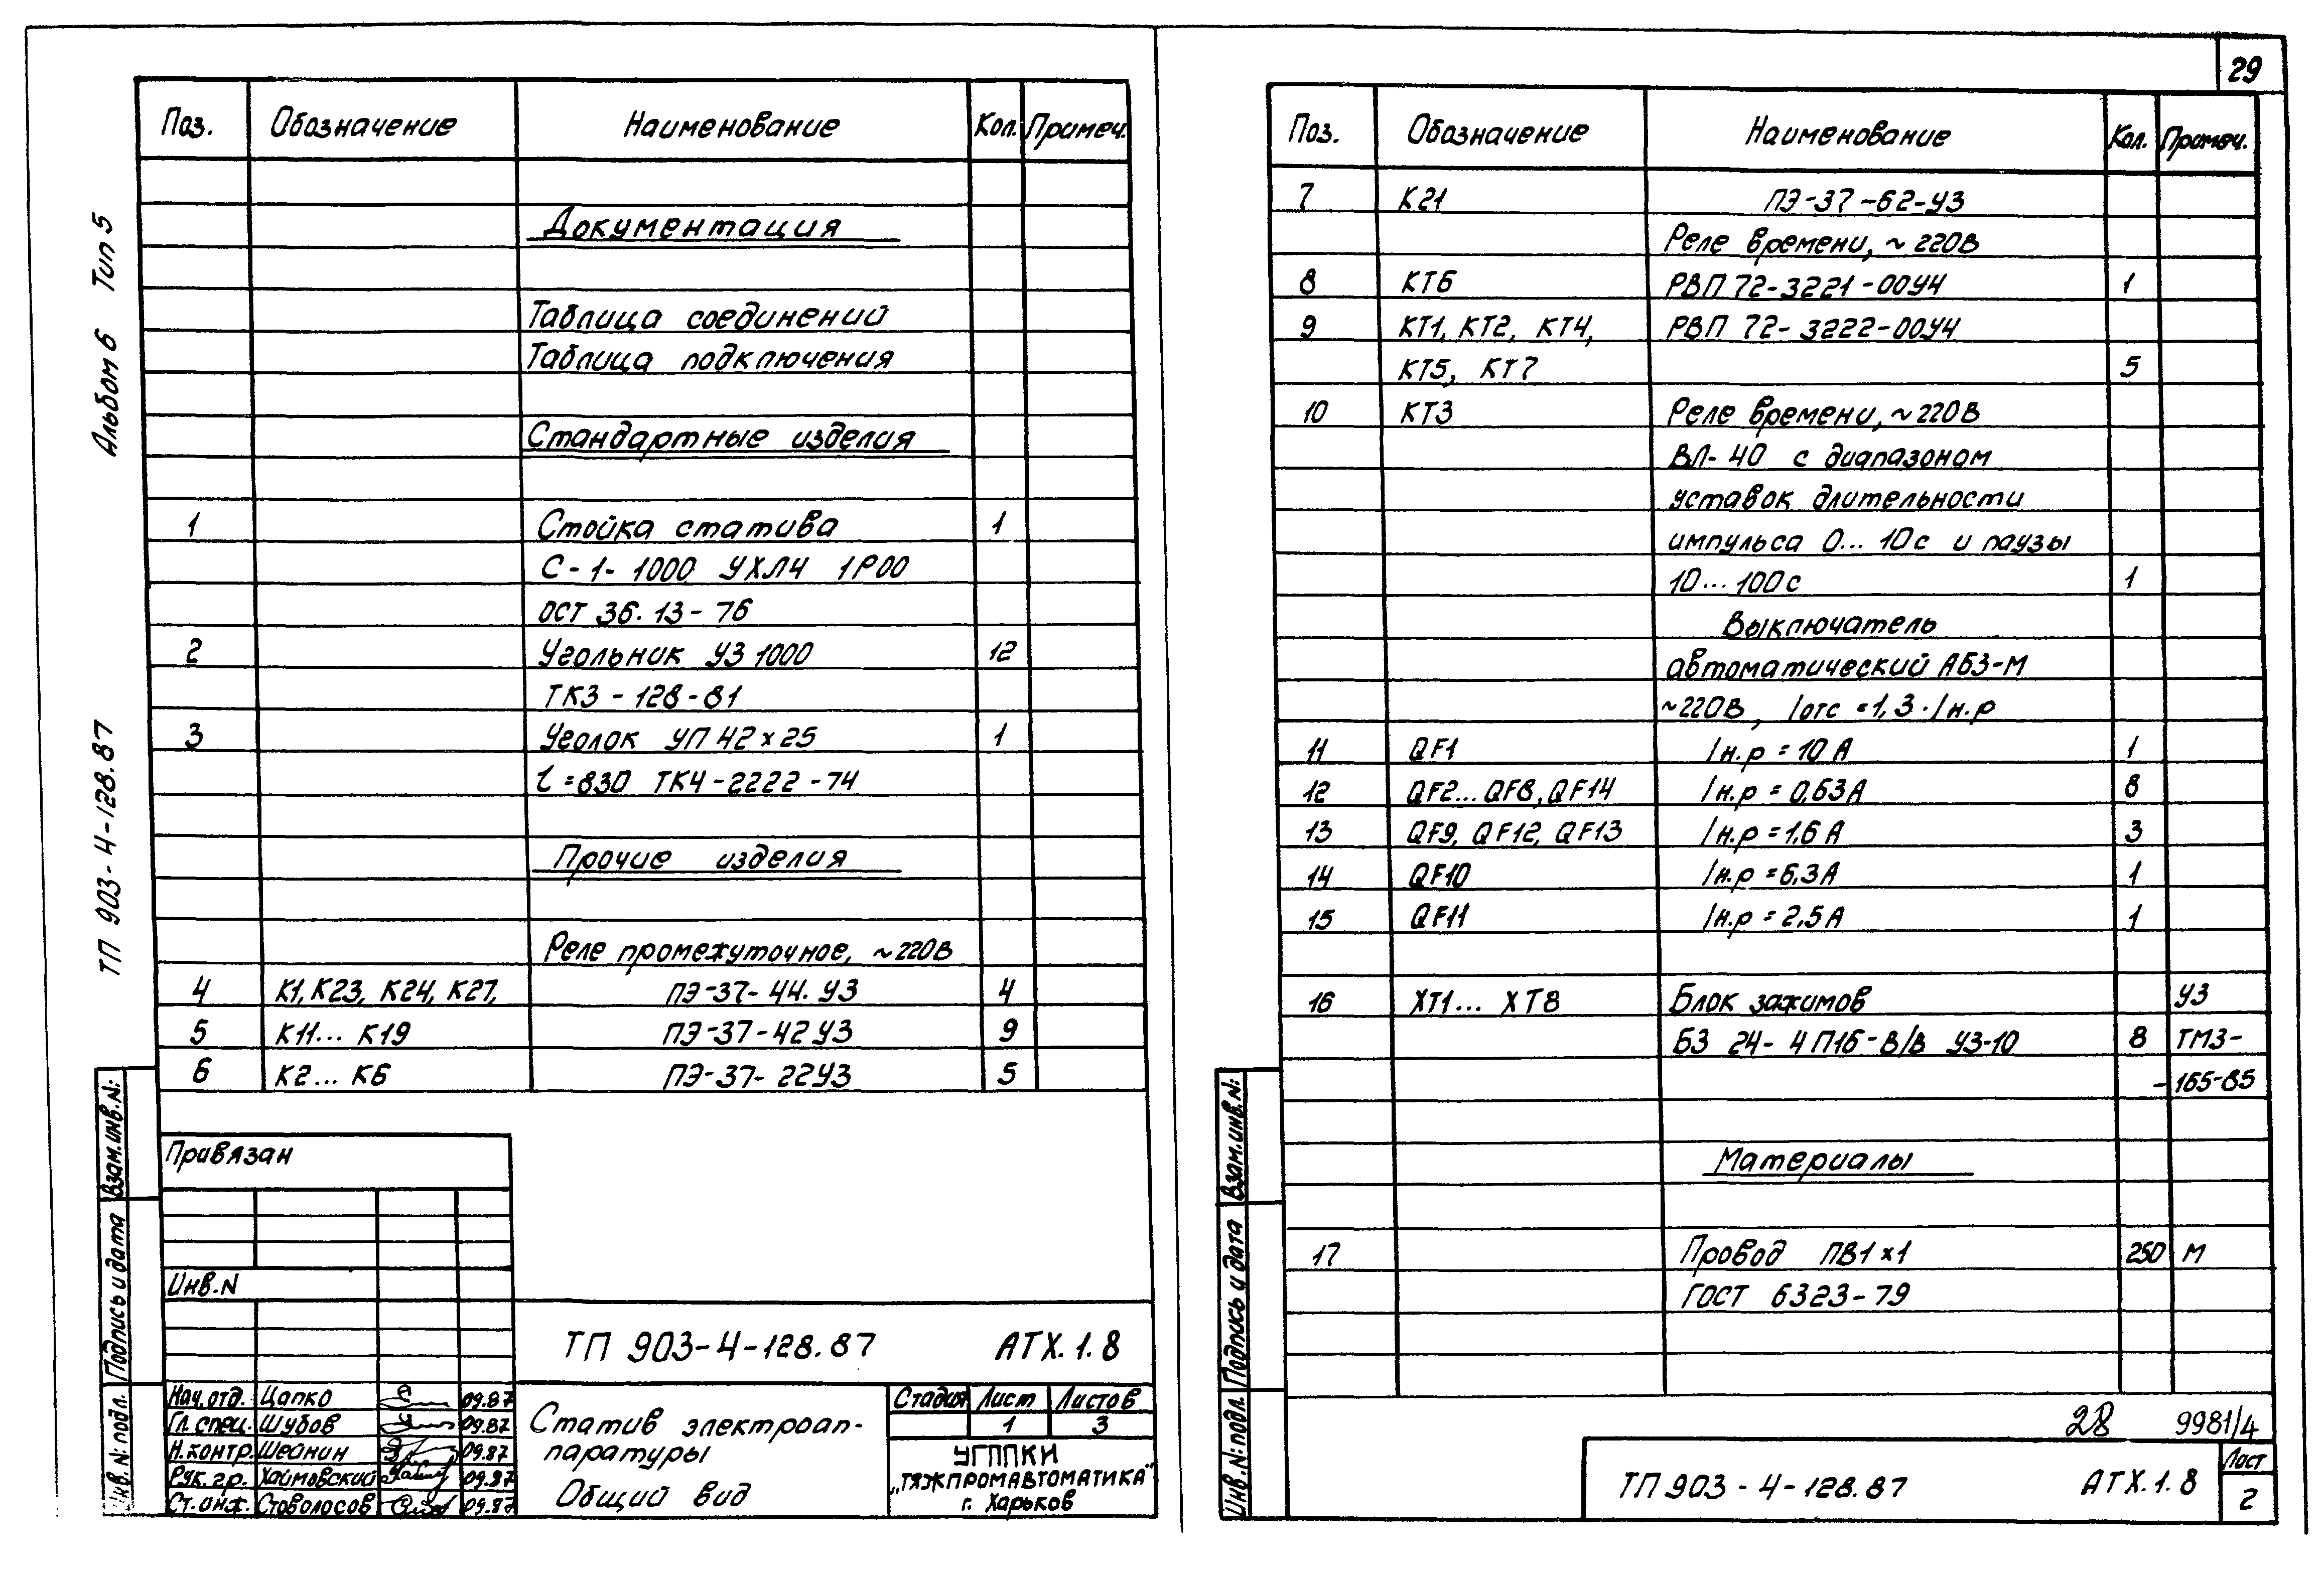 Альбом 6 Тип 5
ТП 903-4-128.87
Поз. Обозначение Наименование Кол. Примеч.
Документация
Таблица соединений
Таблица подключения
Стандартные изделия
1 Стойка статива 1
С-1-1000 УХЛ4 1Р00
ОСТ 36.13-76
2 Угольник УЗ 1000 12
ТК3-128-81
3 Уголок УП 42х25 1
l=830 ТК4-2222-74
Прочие изделия
Реле промежуточное, ~220В
4 К1, К23, К24, К27, ПЭ-37-44.У3 4
5 К11... К19 ПЭ-37-42У3 9
6 К2... К6 ПЭ-37-22У3 5
Привязан
Инв.N
ТП 903-4-128.87 АТХ.1.8
Нач.отд. Цапко 09.87
Гл.спец. Шубов 09.87
Н.контр. Шеинин 09.87
Рук.гр. Хаймовский 09.87
Ст.инж. Стоволосов 09.87
Статив электроап-
паратуры
Общий вид
Стадия Лист Листов
1 3
УГППКИ
„ТЯЖПРОМАВТОМАТИКА"
г. Харьков
Взам.инв.N:
Подпись и дата
Инв.N:подл.
29
Поз. Обозначение Наименование Кол. Примеч.
7 К21 ПЭ-37-62-У3
Реле времени, ~220В
8 КТ6 РВП 72-3221-00У4 1
9 КТ1, КТ2, КТ4, РВП 72-3222-00У4
КТ5, КТ7 5
10 КТ3 Реле времени, ~220В
ВЛ-40 с диапазоном
уставок длительности
импульса 0...10с и паузы
10...100с 1
Выключатель
автоматический АБ3-М
~220В, Iотс=1,3·Iн.р
11 QF1 Iн.р=10А 1
12 QF2...QF8, QF14 Iн.р=0,63А 8
13 QF9, QF12, QF13 Iн.р=1,6А 3
14 QF10 Iн.р=6,3А 1
15 QF11 Iн.р=2,5А 1
16 ХТ1... ХТ8 Блок зажимов У3
Б3 24-4П16-В/В У3-10 8 ТМ3-
-165-85
Материалы
17 Провод ПВ1х1 250 м
ГОСТ 6323-79
28 9981/4
ТП 903-4-128.87 АТХ.1.8
Лист
2
Взам.инв.N:
Подпись и дата
Инв.N:подл.